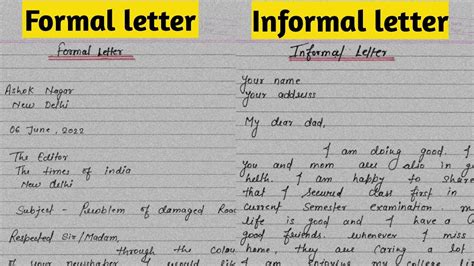 Formal letter
Formal Letter
Ashok Nagar
New Delhi
06 June, 2022
The Editor
The times of india
New delhi
Subject - Problem of damaged Road
Respected Sir/Madam,
through the colou
if your newspaper I would lik
Informal letter
Informal Letter
Your name
Your address
My dear dad,
I am doing good. I
You and mom are also in g
helth. I am happy to share
that I secured class first in
current Semester examination. m
life is good and I have a G
good friends. whenever I miss
home, they are caring a lo
I am enjoying my college li